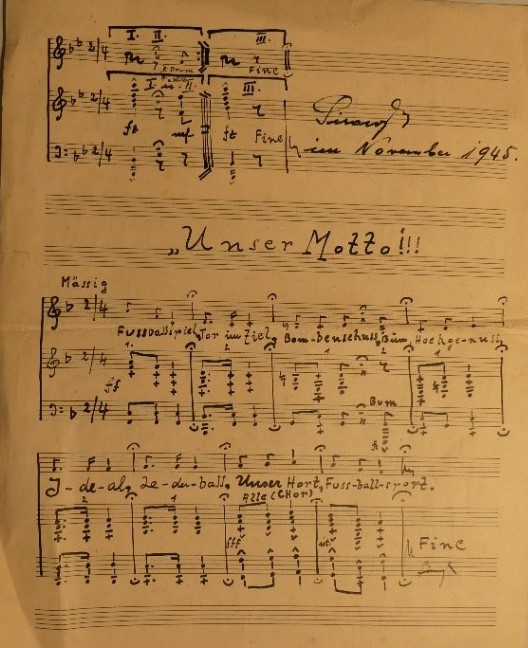 I. II. III.
2/4
Fine
I. u. II III.
2/4
fz mf fz Fine
2/4
im November 1945.
„Unser Motto!!!
Mässig
2/4
Fussballspiel, Tor im Ziel, Bom-benschuss, Bum, Hochge-nuss,
1. 2 1 2
2/4
ff
2/4
Bum
I-de-al, Le-der-ball, Unser Hort, Fuss-ball-sport.
Alle (CHor)
2 1
fff
Fine